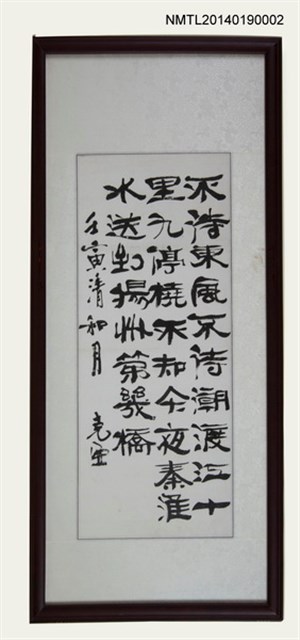 NMTL20140190002
不待東風不待潮渡江十
里九停橈不知今夜秦淮
水送到揚州第幾橋
壬寅清和月